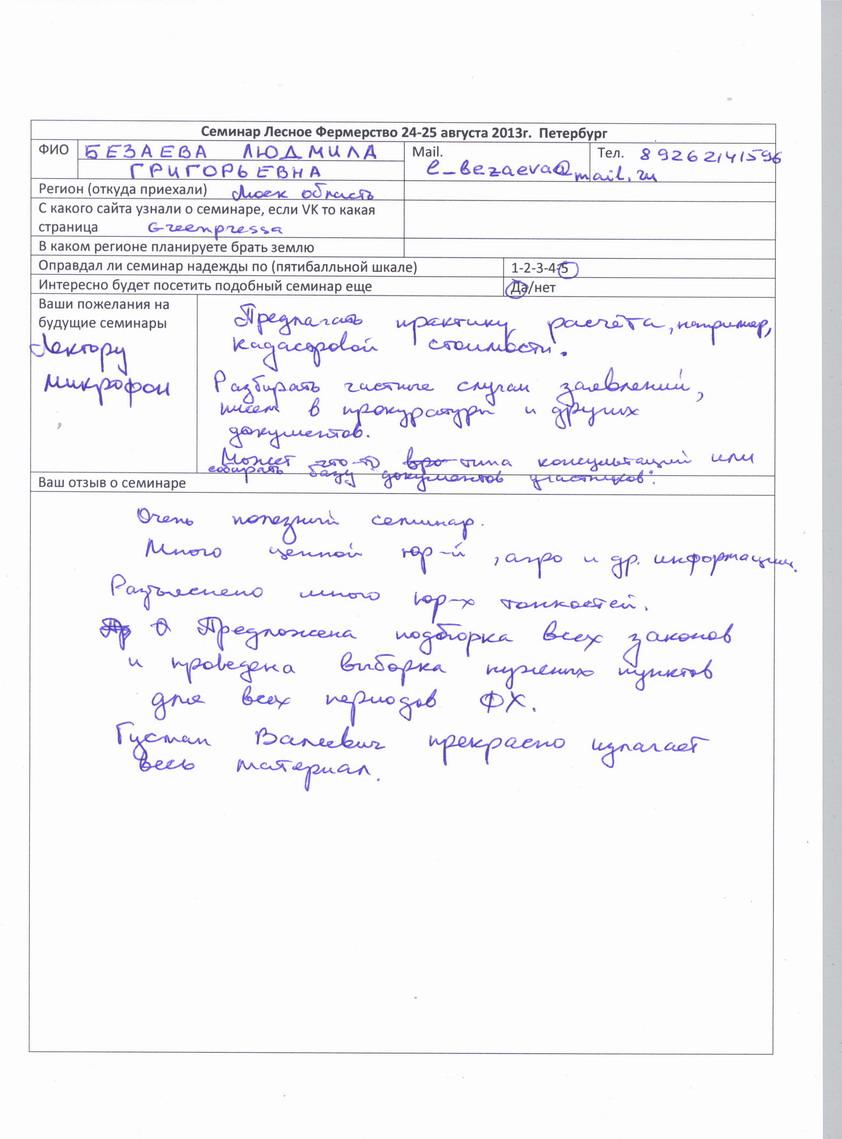 Семинар Лесное Фермерство 24-25 августа 2013г. Петербург
ФИО БЕЗАЕВА ЛЮДМИЛА
ГРИГОРЬЕВНА
Mail. l_bezaeva@mail.ru
Тел. 89262141596
Регион (откуда приехали) Моск область
С какого сайта узнали о семинаре, если VK то какая
страница Greenpressa
В каком регионе планируете брать землю
Оправдал ли семинар надежды по (пятибалльной шкале) 1-2-3-4-5
Интересно будет посетить подобный семинар еще Да/нет
Ваши пожелания на
будущие семинары
Лектору
микрофон
Предлагать практику расчёта, например,
кадастровой стоимости.
Разбирать частные случаи заявлений,
писем в прокуратуру и других
документов.
Может что-то типа консультаций или
собирать базу документов участников.
Ваш отзыв о семинаре
Очень полезный семинар.
Много ценной юр-й, агро и др. информации.
Разъяснено много юр-х тонкостей.
Предложена подборка всех законов
и проведена выборка нужных пунктов
для всех периодов ФХ.
Густман Валеевич прекрасно излагает
весь материал.